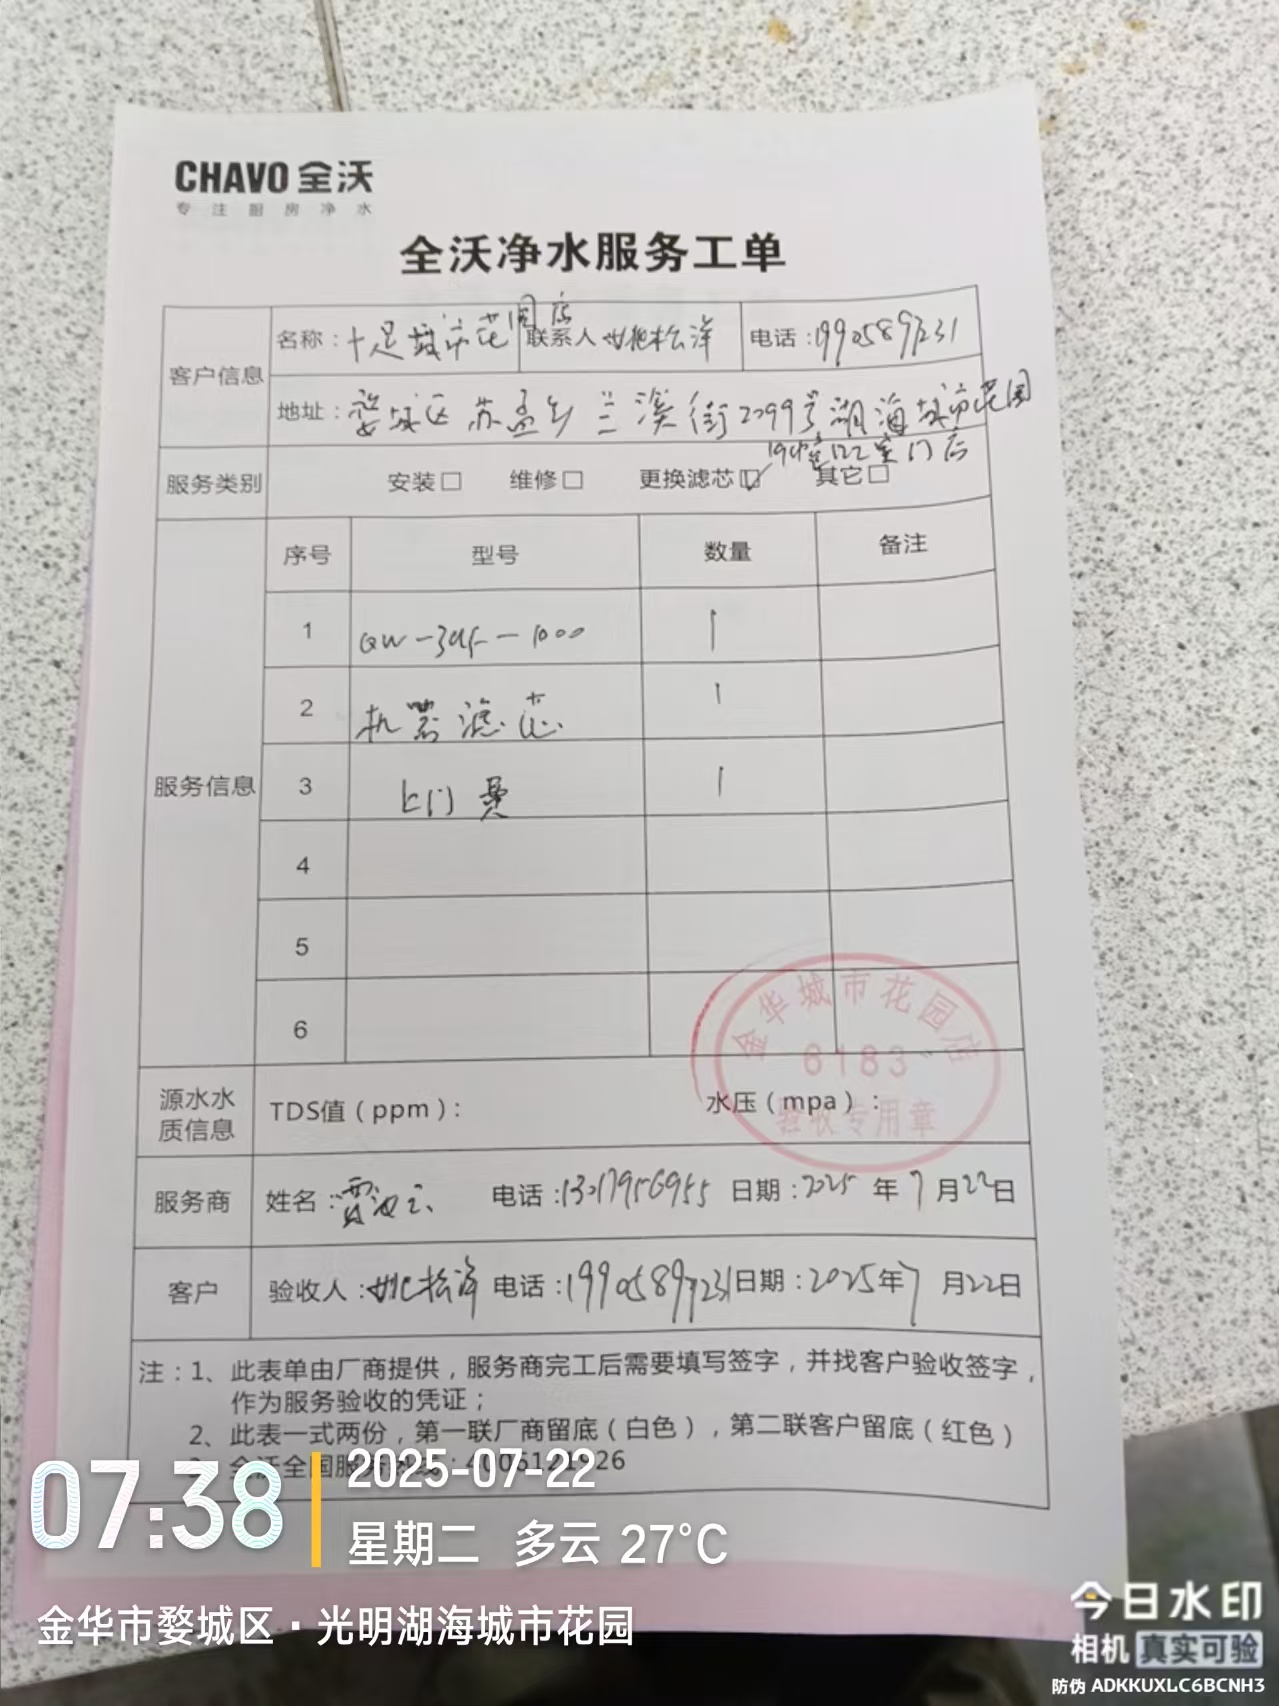 CHAVO 全沃
专注厨房净水
全沃净水服务工单
客户信息
名称：十足城市花园店
联系人 姚松洋
电话：19905897231
地址：婺城区苏孟乡兰溪街2299号湖海城市花园
122室门店
服务类别
安装□ 维修□ 更换滤芯☑ 其它□
服务信息
序号 型号 数量 备注
1 QW-3UF-1000 1
2 机器滤芯 1
3 上门费 1
4
5
6
金华城市花园店
6183
验收专用章
源水水质信息
TDS值（ppm）： 水压（mpa）：
服务商
姓名： 电话：13017956955 日期：2025年7月22日
客户
验收人：姚松洋 电话：19905897231 日期：2025年7月22日
注：1、此表单由厂商提供，服务商完工后需要填写签字，并找客户验收签字，
作为服务验收的凭证；
2、此表一式两份，第一联厂商留底（白色），第二联客户留底（红色）
07:38
2025-07-22
星期二 多云 27°C
金华市婺城区·光明湖海城市花园
今日水印
相机 真实可验
防伪 ADKKUXLC6BCNH3